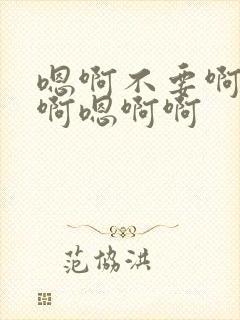 嗯啊不要啊
啊嗯啊啊
范协洪